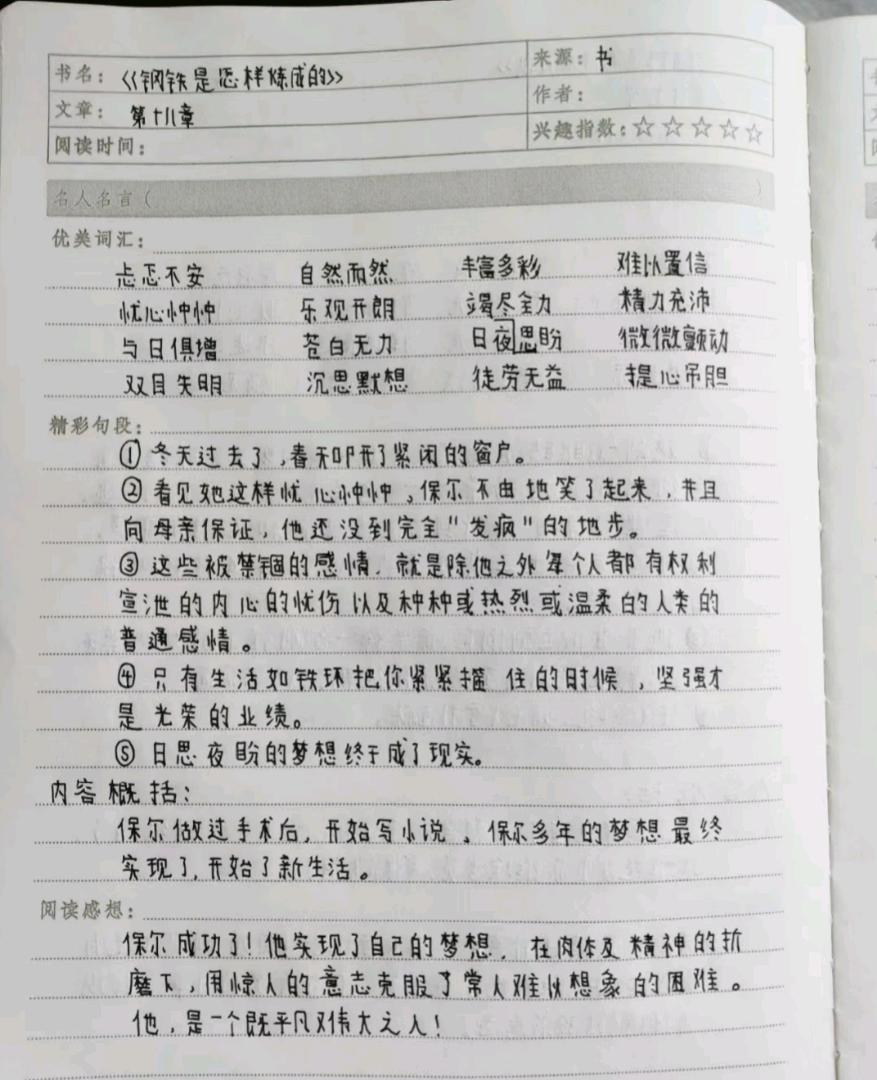 书名：《钢铁是怎样炼成的》 来源：书
文章：第十八章 作者：
阅读时间： 兴趣指数：☆☆☆☆☆
名人名言（ ）
优美词汇：
忐忑不安 自然而然 丰富多彩 难以置信
忧心忡忡 乐观开朗 竭尽全力 精力充沛
与日俱增 苍白无力 日夜思盼 微微颤动
双目失明 沉思默想 徒劳无益 提心吊胆
精彩句段：
①冬天过去了，春天叩开了紧闭的窗户。
②看见她这样忧心忡忡，保尔不由地笑了起来，并且
向母亲保证，他还没到完全"发疯"的地步。
③这些被禁锢的感情，就是除他之外每个人都有权利
宣泄的内心的忧伤以及种种或热烈或温柔的人类的
普通感情。
④只有生活如铁环把你紧紧箍住的时候，坚强才
是光荣的业绩。
⑤日思夜盼的梦想终于成了现实。
内容概括：
保尔做过手术后，开始写小说，保尔多年的梦想最终
实现了，开始了新生活。
阅读感想：
保尔成功了！他实现了自己的梦想，在肉体及精神的折
磨下，用惊人的意志克服了常人难以想象的困难。
他，是一个既平凡又伟大之人！